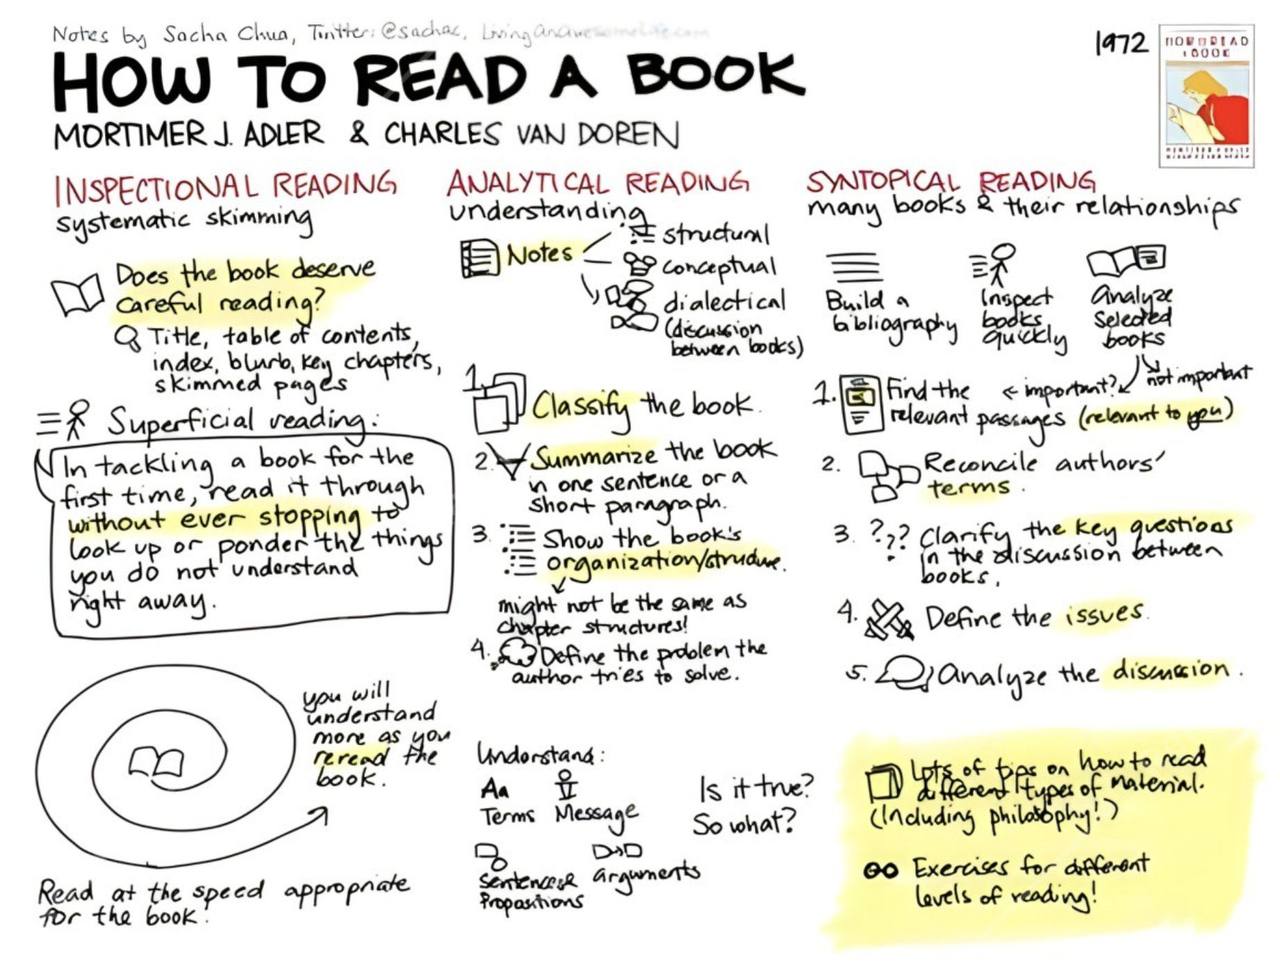 Notes by Sacha Chua, Twitter: @sachac, LivingAnAwesomeLife.com
HOW TO READ A BOOK
MORTIMER J. ADLER & CHARLES VAN DOREN
1972
INSPECTIONAL READING
systematic skimming
Does the book deserve
careful reading?
Title, table of contents,
index, blurb, key chapters,
skimmed pages
Superficial reading:
In tackling a book for the
first time, read it through
without ever stopping to
look up or ponder the things
you do not understand
right away.
you will
understand
more as you
reread the
book.
Read at the speed appropriate
for the book!
ANALYTICAL READING
understanding
Notes
structural
conceptual
dialectical
(discussion
between books)
1. Classify the book.
2. Summarize the book
in one sentence or a
short paragraph.
3. Show the book's
organization/structure.
might not be the same as
chapter structures!
4. Define the problem the
author tries to solve.
Understand:
Aa
Terms Message
Sentences &
Propositions
arguments
Is it true?
So what?
SYNTOPICAL READING
many books & their relationships
Build a
bibliography
Inspect
books
quickly
Analyze
Selected
books
← important?
not important
1. Find the
relevant passages (relevant to you)
2. Reconcile authors'
terms.
3. ??? Clarify the key questions
in the discussion between
books.
4. Define the issues.
5. Analyze the discussion.
Lots of tips on how to read
different types of material.
(Including philosophy!)
Exercises for different
levels of reading!